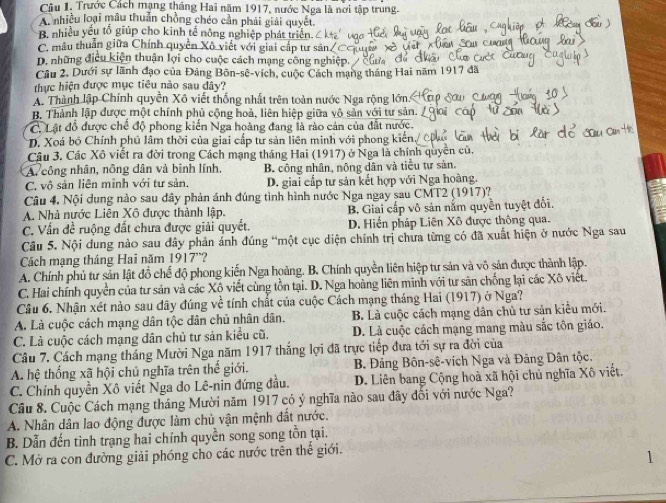 Câu 1. Trước Cách mạng tháng Hai năm 1917, nước Nga là nơi tập trung.
A. nhiều loại mâu thuẫn chồng chéo cần phải giải quyết.
B. nhiều yếu tố giúp cho kinh tế nông nghiệp phát triển.
C. mâu thuẫn giữa Chính quyền Xô viết với giai cấp tư sản
D. những điều kiện thuận lợi cho cuộc cách mạng công nghiệp.
Câu 2. Dưới sự lãnh đạo của Đảng Bôn-sê-vích, cuộc Cách mạng tháng Hai năm 1917 đã
thực hiện được mục tiêu nào sau đây?
A. Thành lập Chính quyền Xô viết thống nhất trên toàn nước Nga rộng lớn.
B. Thành lập được một chính phủ cộng hoà, liên hiệp giữa vô sản với tư sản.
C. Lật đổ được chế độ phong kiến Nga hoàng đang là rào cản của đất nước.
D. Xoá bỏ Chính phủ lâm thời của giai cấp tư sản liên minh với phong kiến.
Câu 3. Các Xô viết ra đời trong Cách mạng tháng Hai (1917) ở Nga là chính quyền củ.
A. công nhân, nông dân và binh lính. B. công nhân, nông dân và tiểu tư sản.
C. vô sản liên minh với tư sản. D. giai cấp tư sản kết hợp với Nga hoàng.
Câu 4. Nội dung nào sau đây phản ánh đúng tình hình nước Nga ngay sau CMT2 (1917)?
A. Nhà nước Liên Xô được thành lập. B. Giai cấp vô sản nắm quyền tuyệt đối.
C. Vấn đề ruộng đất chưa được giải quyết. D. Hiến pháp Liên Xô được thông qua.
Câu 5. Nội dung nào sau đây phản ánh đúng “một cục diện chính trị chưa từng có đã xuất hiện ở nước Nga sau
Cách mạng tháng Hai năm 1917”?
A. Chính phủ tư sản lật đổ chế độ phong kiến Nga hoàng. B. Chính quyền liên hiệp tư sản và vô sản được thành lập.
C. Hai chính quyền của tư sản và các Xô viết cùng tồn tại. D. Nga hoàng liên minh với tư sản chống lại các Xô viết.
Câu 6. Nhận xét nào sau đây đúng về tính chất của cuộc Cách mạng tháng Hai (1917) ở Nga?
A. Là cuộc cách mạng dân tộc dân chủ nhân dân. B. Là cuộc cách mạng dân chủ tư sản kiểu mới.
C. Là cuộc cách mạng dân chủ tư sản kiểu cũ. D. Là cuộc cách mạng mang màu sắc tôn giáo.
Câu 7. Cách mạng tháng Mười Nga năm 1917 thắng lợi đã trực tiếp đưa tới sự ra đời của
A. hệ thống xã hội chủ nghĩa trên thế giới. B. Đảng Bôn-sê-vích Nga và Đảng Dân tộc.
C. Chính quyền Xô viết Nga do Lê-nin đứng đầu. D. Liên bang Cộng hoà xã hội chủ nghĩa Xô viết.
Câu 8. Cuộc Cách mạng tháng Mười năm 1917 có ý nghĩa nào sau đây đối với nước Nga?
A. Nhân dân lao động được làm chủ vận mệnh đất nước.
B. Dẫn đến tình trạng hai chính quyền song song tồn tại.
C. Mở ra con đường giải phóng cho các nước trên thế giới.
1